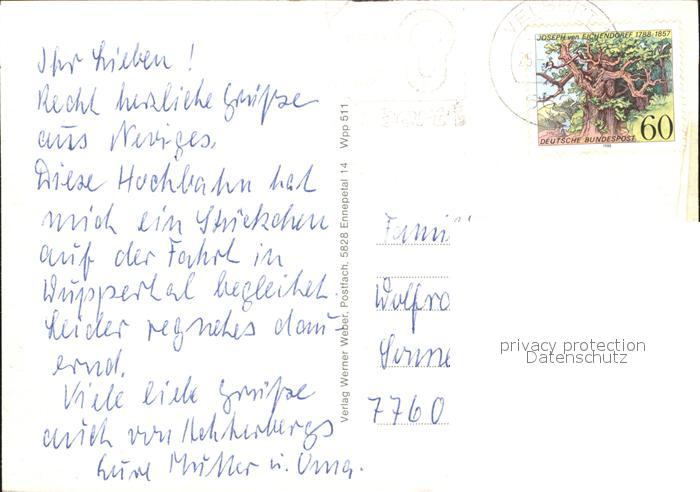 Ihr Lieben!
Recht herzliche Grüße
aus Neviges.
Diese Hochbahn hat
mich ein Stückchen
auf der Fahrt in
Wuppertal begleitet.
Leider regnet es dau-
ernd.
Viele liebe Grüße
auch von
Eure Mutter u. Oma.
Verlag Werner Weber, Postfach, 5828 Ennepetal 14 Wpp 511
JOSEPH von EICHENDORFF 1788-1857
60
DEUTSCHE BUNDESPOST
1988
Fami
Wolfra
7760
privacy protection
Datenschutz